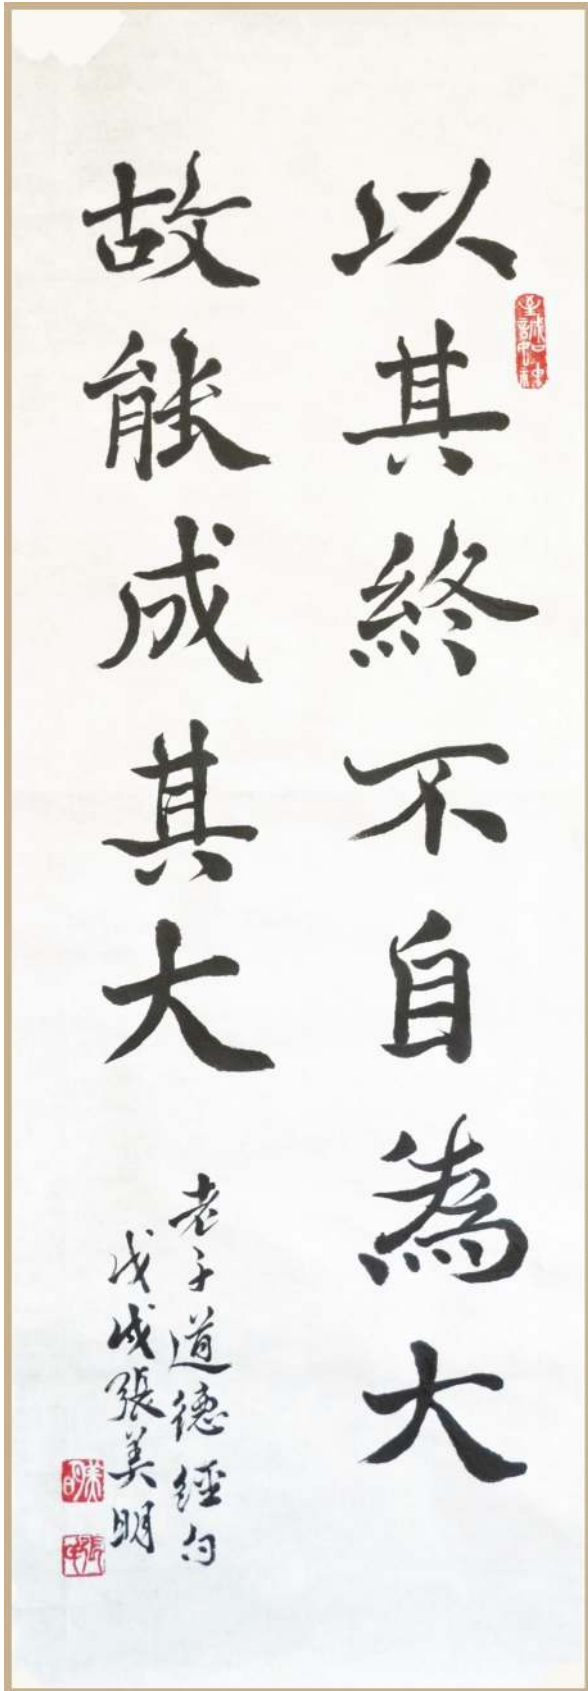 以其終不自為大
故能成其大
老子道德經句
戊戌張美明
至誠如神